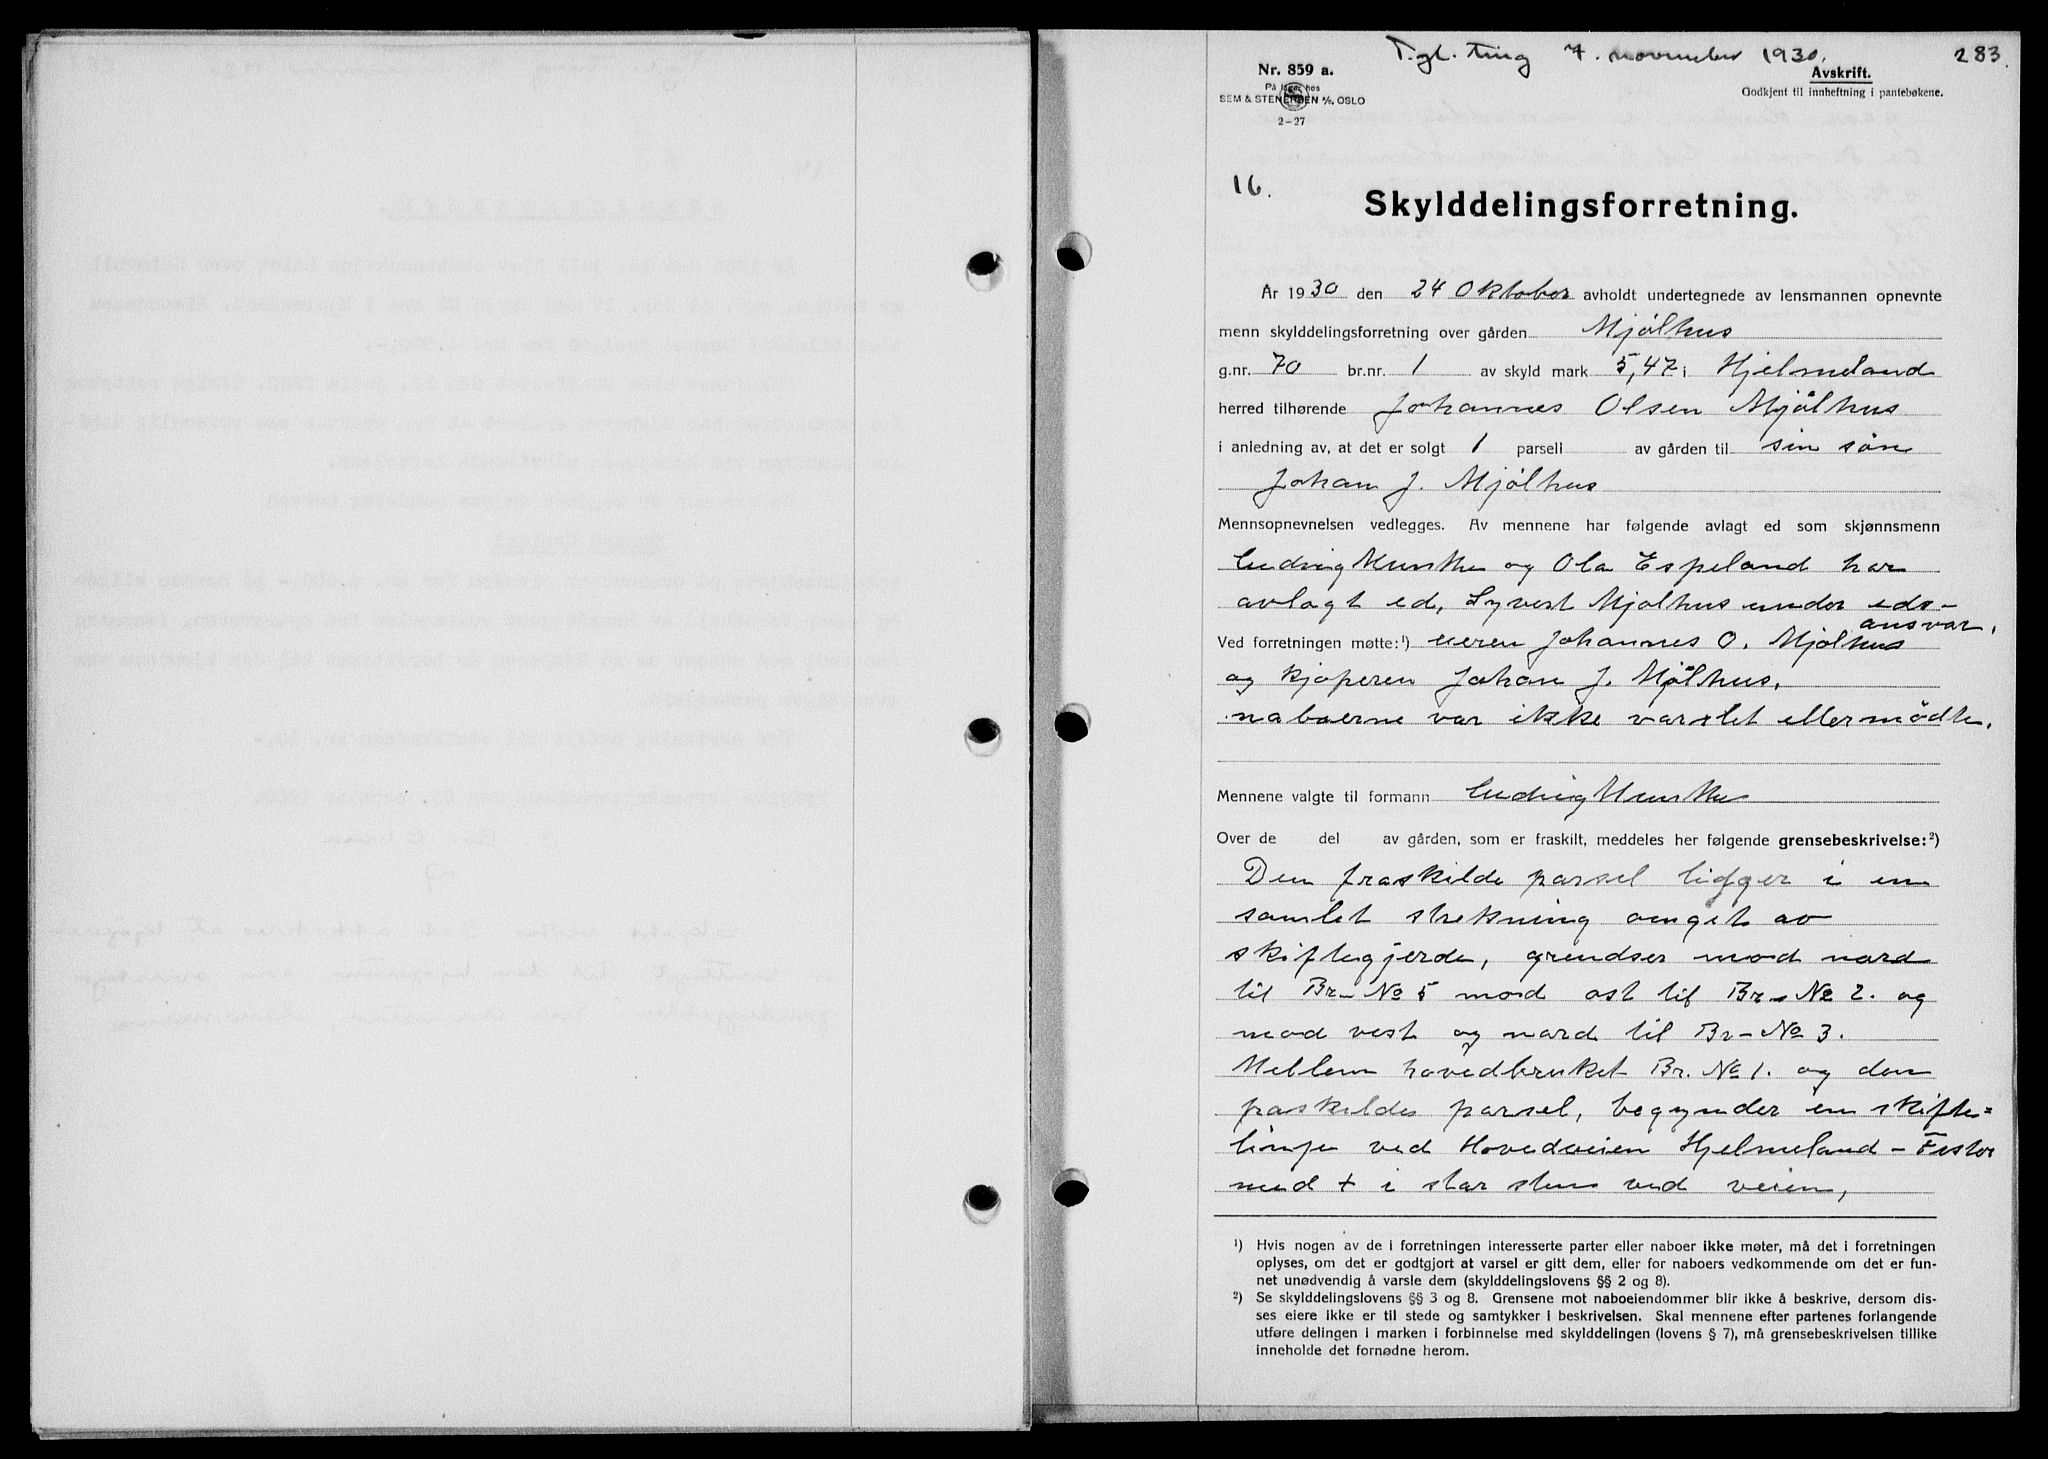 Tgl. ting 7. november 1930.
283.
Nr. 859 a.
På lager hos
SEM & STENERSEN A/S, OSLO
2-27
Avskrift.
Godkjent til innheftning i pantebøkene.
16.
Skylddelingsforretning.
År 1930 den 24 Oktober avholdt undertegnede av lensmannen opnevnte
menn skylddelingsforretning over gården Mjølhus
g.nr. 70 br.nr. 1 av skyld mark 5,47 i Hjelmeland
herred tilhørende Johannes Olsen Mjølhus
i anledning av, at det er solgt 1 parsell av gården til sin søn
Johan J. Mjølhus
Mennsopnevnelsen vedlegges. Av mennene har følgende avlagt ed som skjønnsmenn
Ludvig Munthe og Ola Espeland har
avlagt ed, Syvert Mjølhus under eds-
ansvar.
Ved forretningen møtte:¹) eieren Johannes O. Mjølhus
og kjøperen Johan J. Mjølhus.
naboerne var ikke varslet eller mødte.
Mennene valgte til formann Ludvig Munthe
Over de del av gården, som er fraskilt, meddeles her følgende grensebeskrivelse:²)
Den fraskilde parsel ligger i en
samlet strekning omget av
skiftegjerde, grendser mod nord
til Br- No 5 mod ost til Br- No 2. og
mod vest og nord til Br- No 3.
Mellem hovedbruket Br. No 1. og den
fraskilde parsel, begynder en skifte=
linje ved Hovedveien Hjelmeland - Fister
med + i stor sten ved veien,
¹) Hvis nogen av de i forretningen interesserte parter eller naboer ikke møter, må det i forretningen
oplyses, om det er godtgjort at varsel er gitt dem, eller for naboers vedkommende om det er fun-
net unødvendig å varsle dem (skylddelingslovens §§ 2 og 8).
²) Se skylddelingslovens §§ 3 og 8. Grensene mot naboeiendommer blir ikke å beskrive, dersom dis-
ses eiere ikke er til stede og samtykker i beskrivelsen. Skal mennene efter partenes forlangende
utføre delingen i marken i forbinnelse med skylddelingen (lovens § 7), må grensebeskrivelsen tillike
inneholde det fornødne herom.